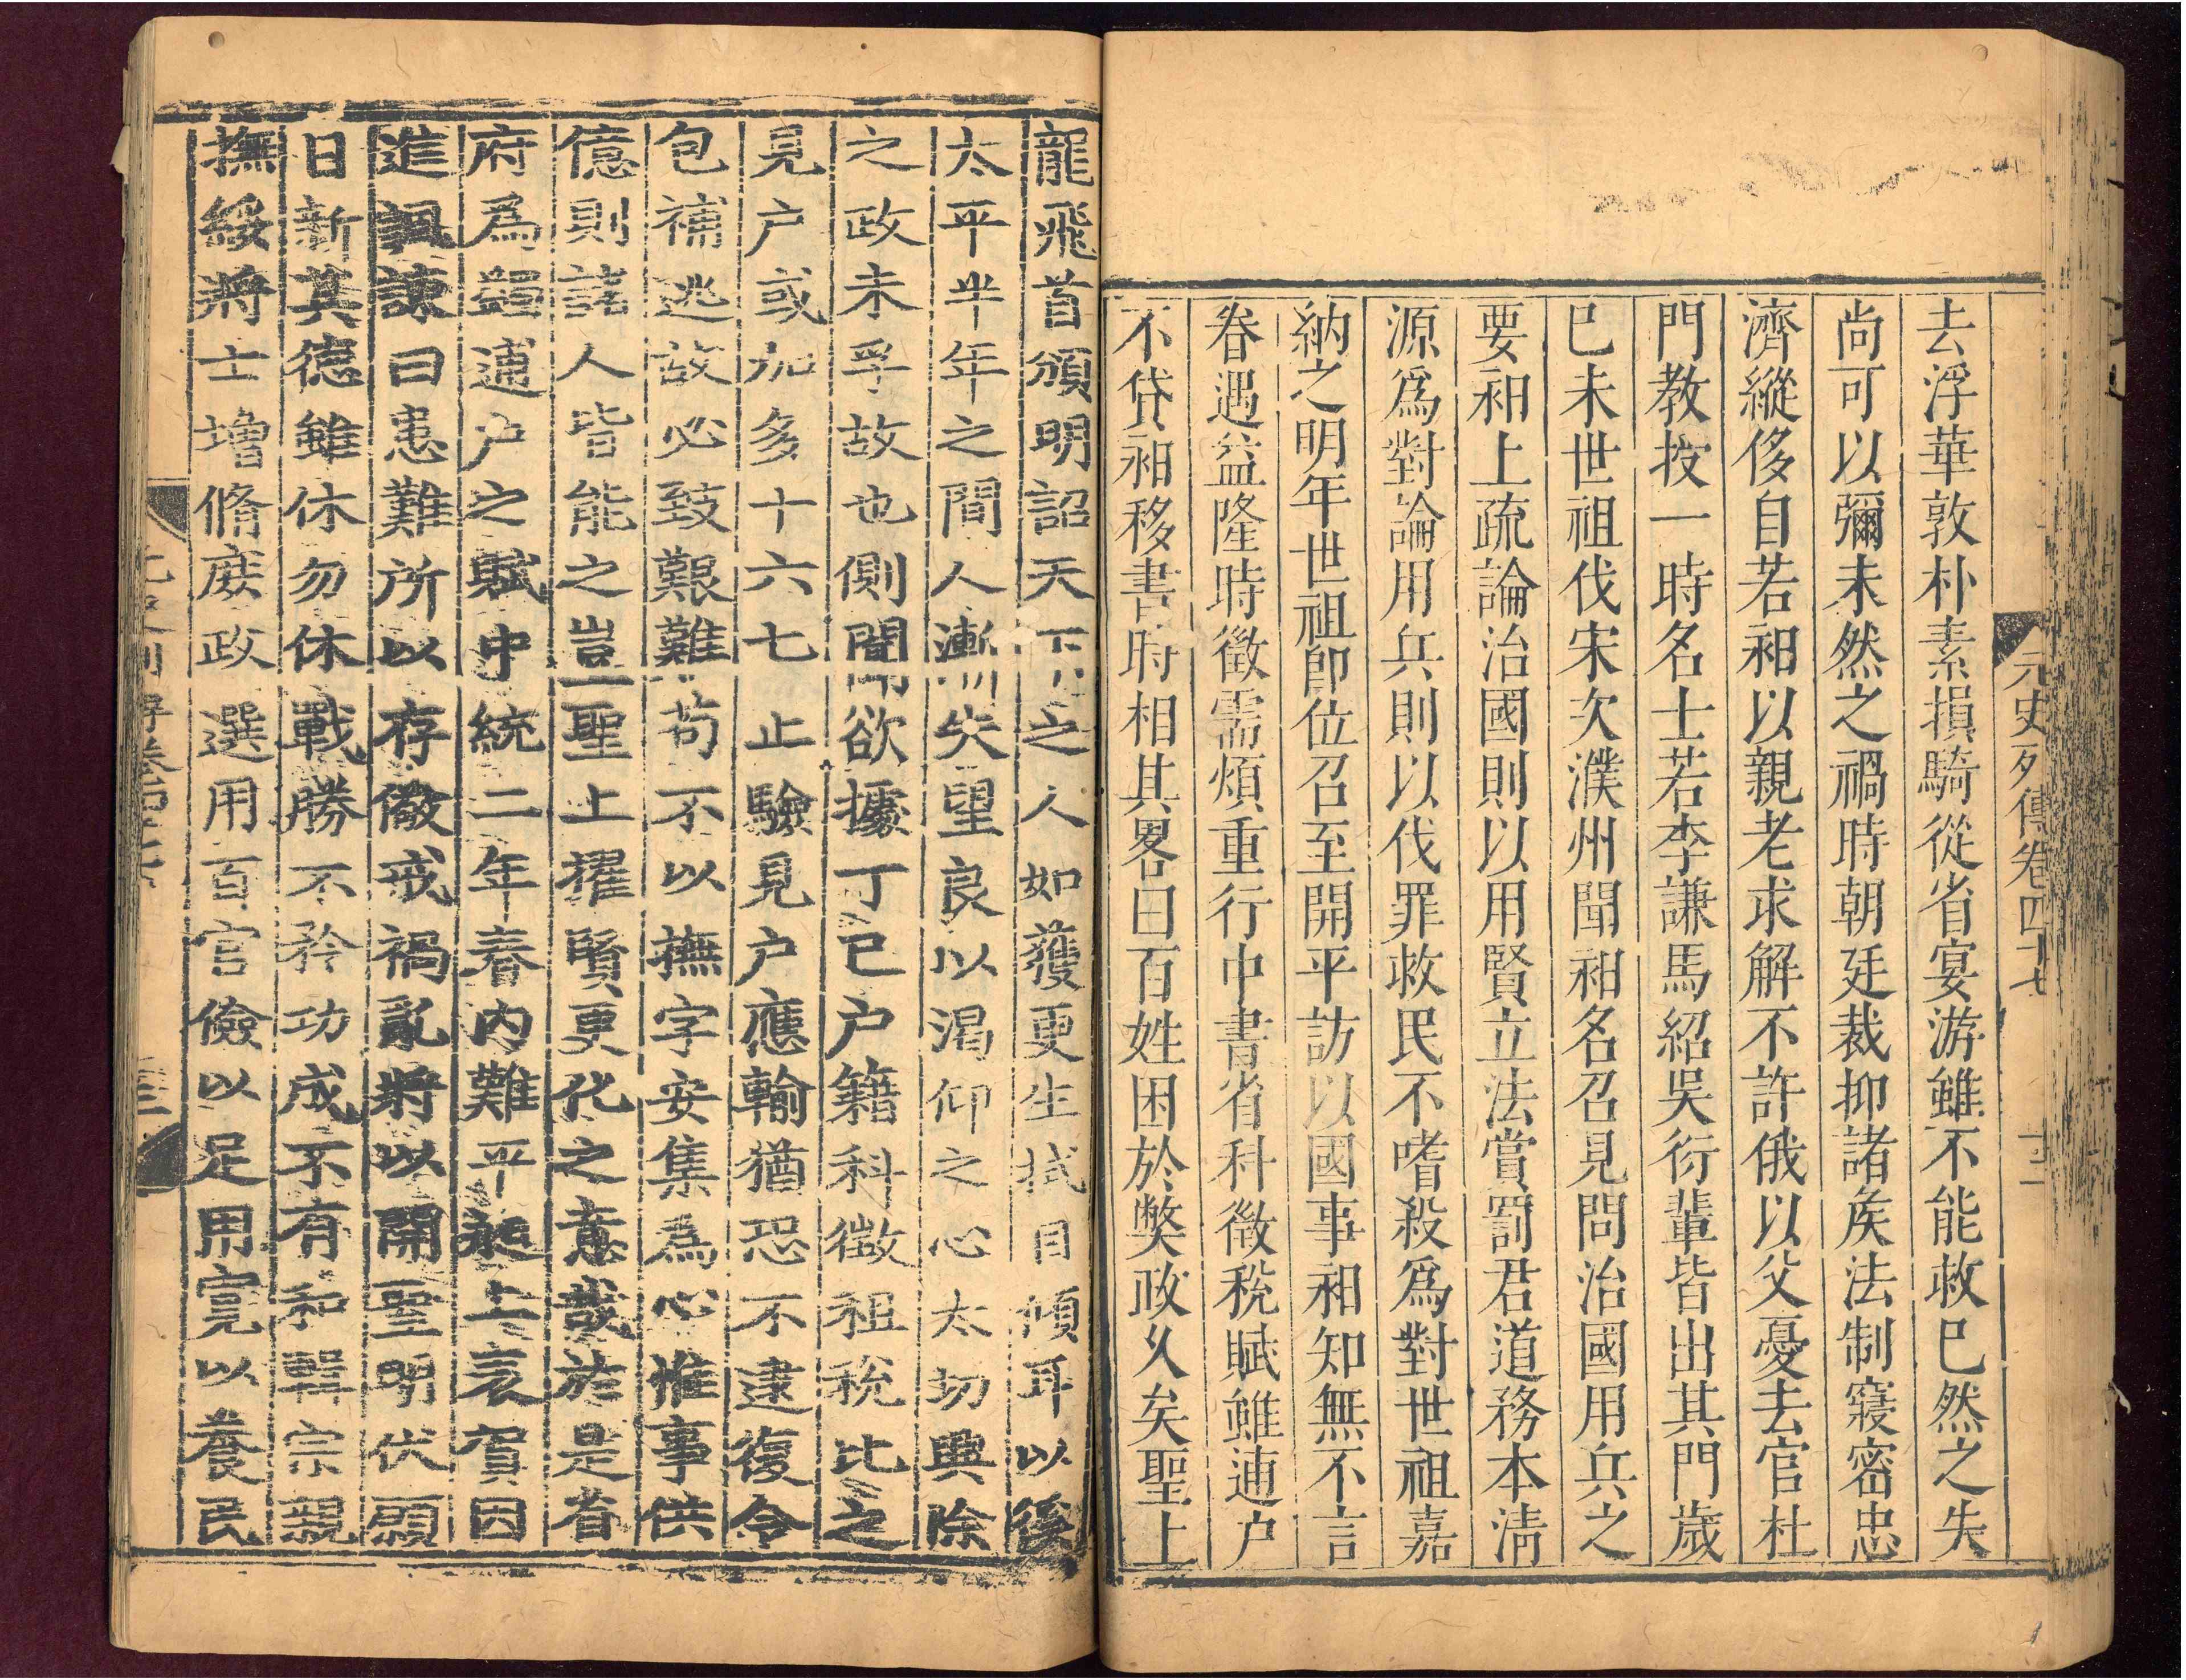 元史列傳卷四十七
去浮華敦朴素損騎從省宴游雖不能救已然之失
尚可以彌未然之禍時朝廷裁抑諸矦法制寖密忠
濟縱侈自若昶以親老求解不許俄以父憂去官杜
門教授一時名士若李謙馬紹吳衍輩皆出其門歲
巳未世祖伐宋次濮州聞昶名召見問治國用兵之
要昶上疏論治國則以用賢立法賞罰君道務本淸
源爲對論用兵則以伐罪救民不嗜殺爲對世祖嘉
納之明年世祖卽位召至開平訪以國事昶知無不言
眷遇益隆時徵需煩重行中書省科徵稅賦雖逋户
不貸昶移書時相其畧曰百姓困於弊政乆矣聖上
龍飛首頒明詔天下之人如獲更生拭目傾耳以後
太平半年之間人漸失望良以渴仰之心太切興除
之政未孚故也側聞欲據丁巳户籍科徵租稅比之
見户或加多十六七止驗見户應輸猶恐不逮復令
包補逃故必致艱難苟不以撫字安集為心惟事供
億則諸人皆能之豈聖上擢賢更化之意哉於是省
府爲蠲逋户之賦中統二年春内難平昶上表賀因
進諷諫曰患難所以存儆戒禍亂將以開聖明伏願
日新其德雖休勿休戰勝不矜功成不有和輯宗親
撫綏將士增脩庶政選用百官儉以足用寛以養民